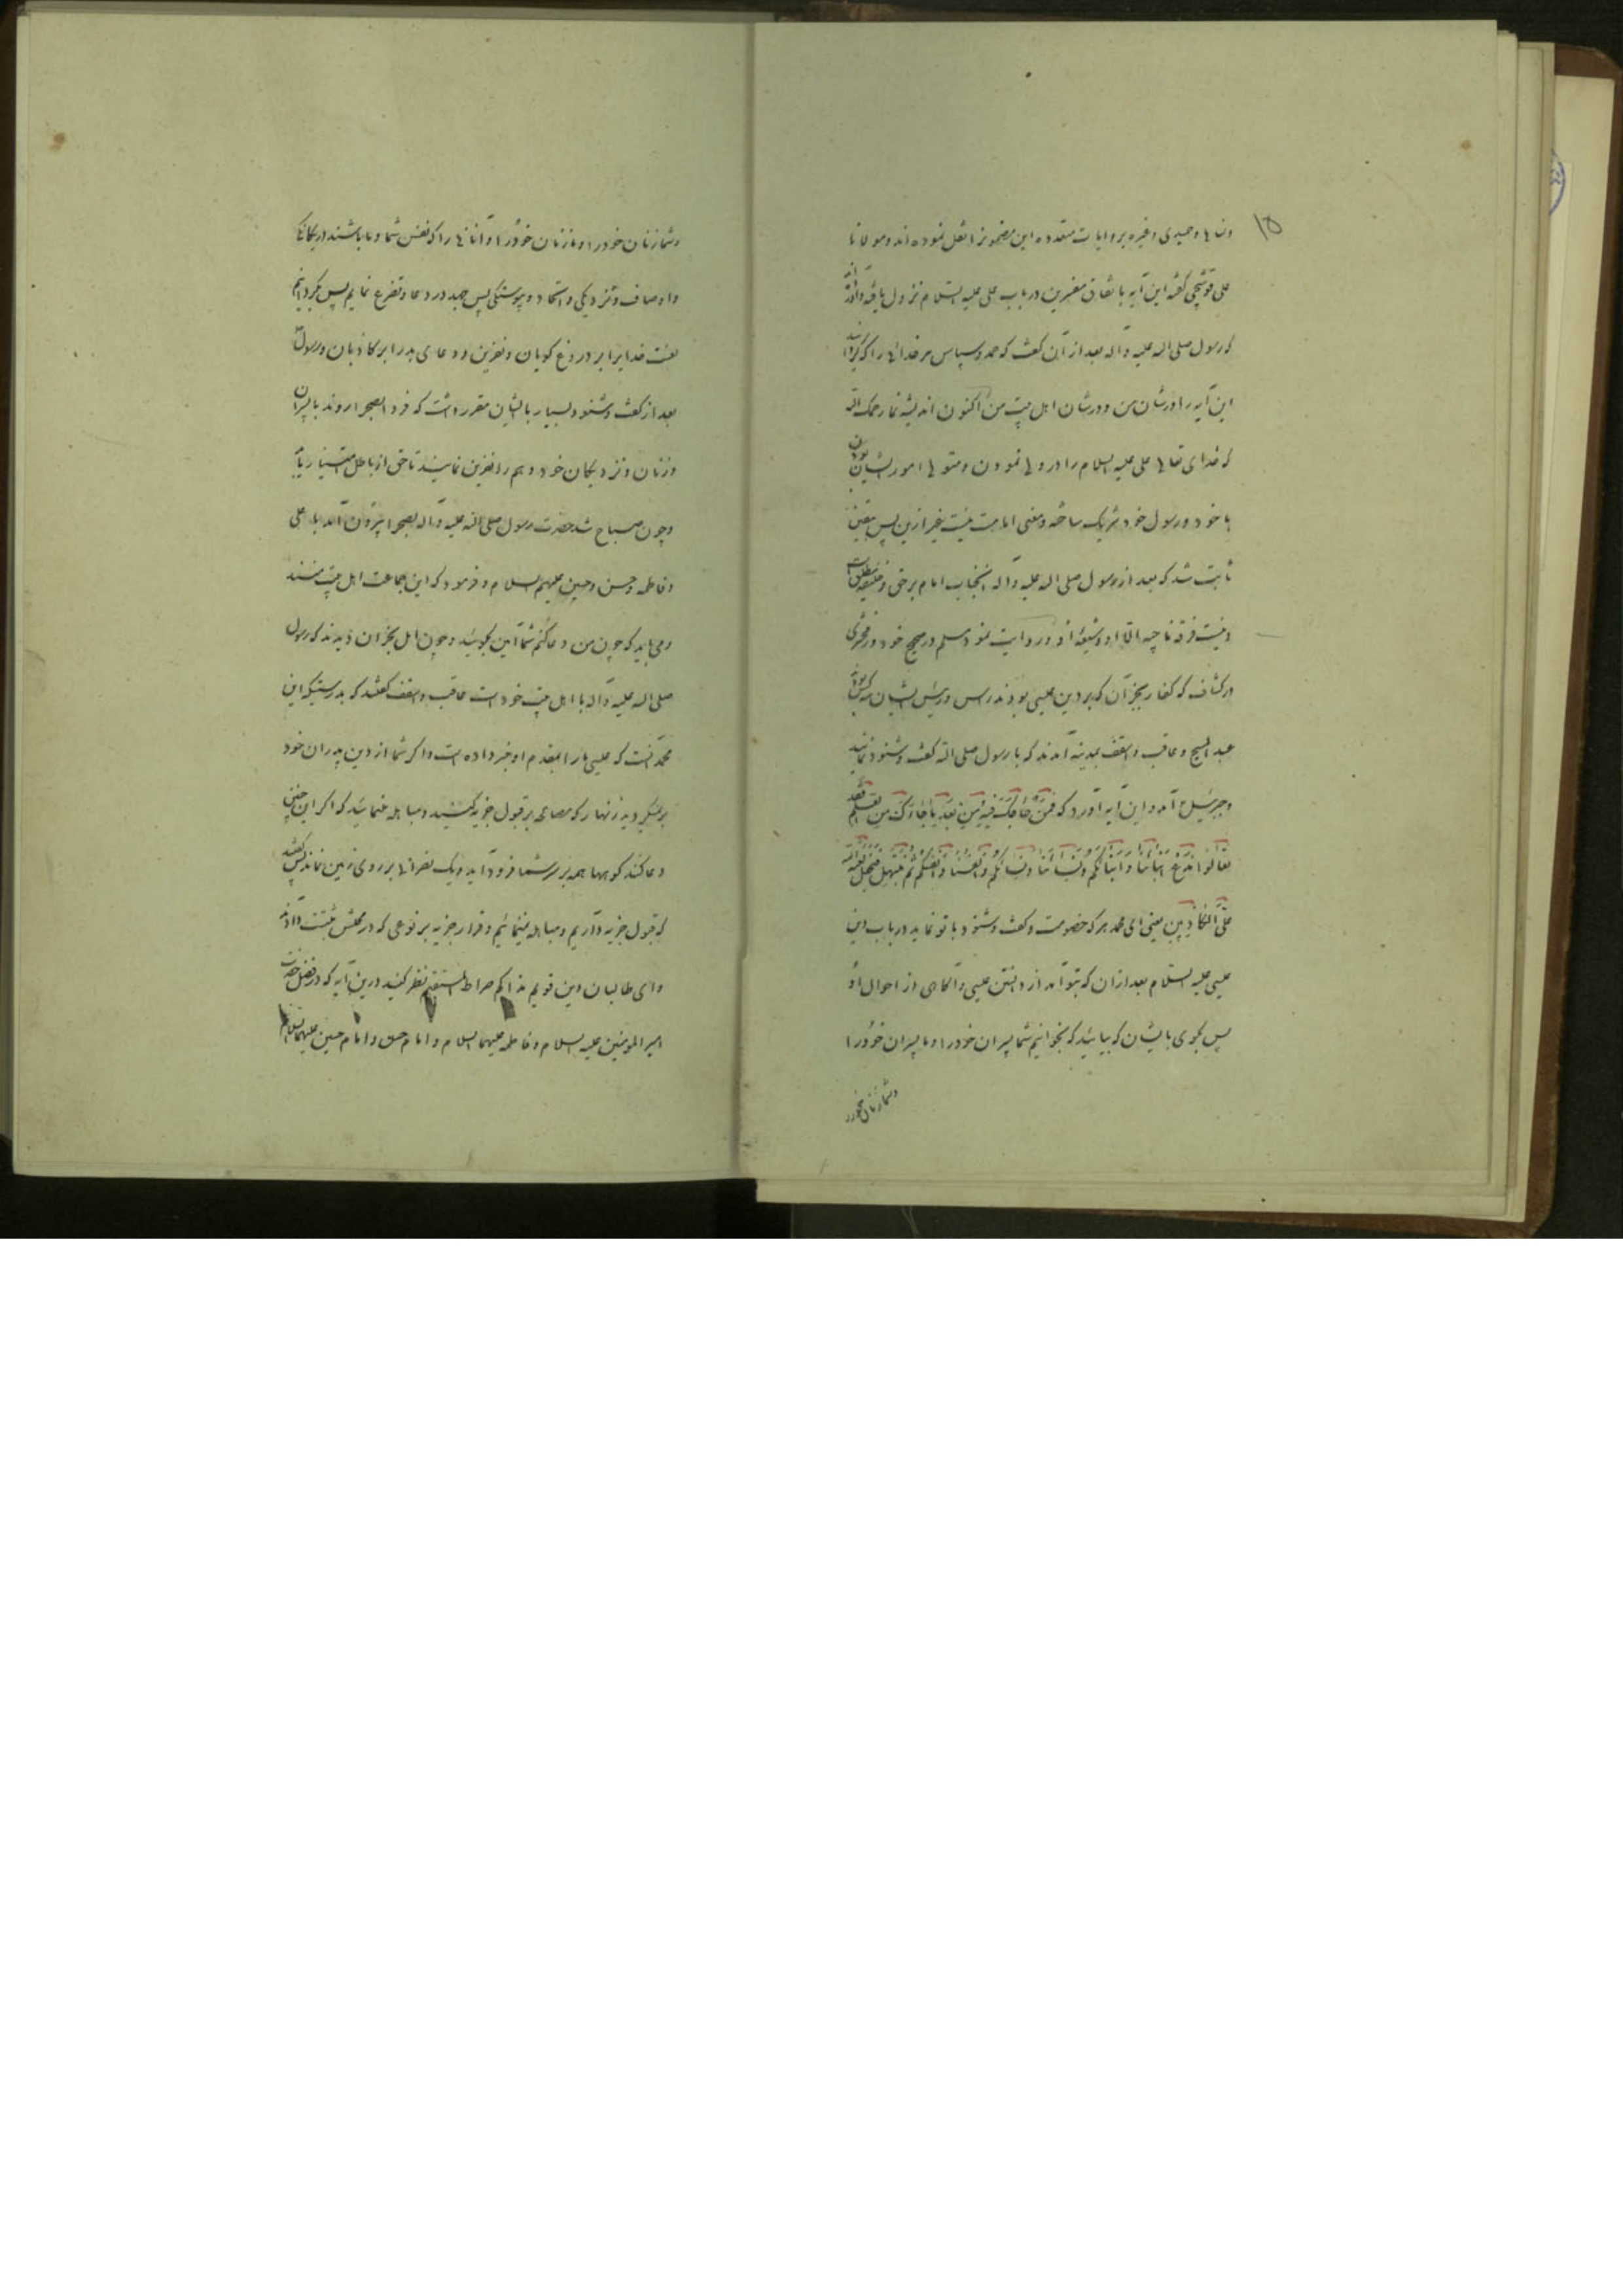 ۱۵
و نسایی و حمیدی و غیره بروایات متعدده این مضمونرا نقل نموده اند و مولانا
علی قوشچی گفته این آیه باتفاق مفسرین در باب علی علیه السلام نزول یافته و آورده اند
که رسول صلی الله علیه و آله بعد از آن گفت که حمد و سپاس مر خدائی را که گردانید
این آیه را در شان من و در شان اهل بیت من اکنون اندیشه نما رحمک الله
که خدای تعالی علی علیه السلام را در ولی نمودن و متولی امور ایشان بودن
با خود و رسول خود شریک ساخته و معنی امامت نیست غیر ازین پس بیقین
ثابت شد که بعد از رسول صلی الله علیه و آله آنجناب امام بر حق و خلیفه مطلق است
و نیست فرقه ناجیه الا او و شیعه او و روایت نمود مسلم در صحیح خود و زمخشری
در کشاف که کفار نجران که بر دین عیسی بودند و رئیس ایشان سه کس بودند
عبد المسیح و عاقب و اسقف بمدینه آمدند که با رسول صلی الله گفت و شنود نمایند
و جبرئیل آمد و این آیه آورد که فَمَنْ حَاجَّکَ فِیهِ مِنْ بَعْدِ مَا جَاءَکَ مِنَ الْعِلْمِ فَقُلْ
تَعَالَوْا نَدْعُ اَبْنَاءَنَا وَ اَبْنَاءَکُمْ وَ نِسَاءَنَا وَ نِسَاءَکُمْ وَ اَنْفُسَنَا وَ اَنْفُسَکُمْ ثُمَّ نَبْتَهِلْ فَنَجْعَلْ لَعْنَةَ اللهِ
عَلَی الْکَاذِبِینَ یعنی ای محمد هر که خصومت و گفت و شنود با تو نماید در باب دین
عیسی علیه السلام بعد از ان که بتو آمد از دانستن عیسی و آگاهی از احوال او
پس بگوی بایشان که بیائید که بخوانیم شما پسران خود را و ما پسران خود را
و شما زنان خود را
و شما زنان خود را و ما زنان خود را و آنانی را که نفس شما و ما باشند در یگانگی
و اوصاف و نزدیکی و اتحاد و پیوستگی پس جهد در دعا و تضرع نمایم پس بگردانیم
لعنت خدایرا بر دروغ گویان و نفرین و دعای بد را بر کاذبان و رسول
بعد از گفت و شنود بسیار بایشان مقرر داشت که فردا بصحرا روند با پسران
و زنان و نزدیکان خود و هم را نفرین نمایند تا حق از باطل متمیز یابد
و چون صباح شد حضرت رسول صلی الله علیه و آله بصحرا بیرون آمد با علی
و فاطمه و حسن و حسین علیهم السلام و فرمود که این جماعت اهل بیت منند
و می باید که چون من دعا کنم شما آمین بگوئید و چون اهل نجران دیدند که رسول
صلی الله علیه و آله با اهل بیت خود است عاقب و اسقف گفتند که بدرستیکه این
محمد آنست که عیسی ما را بمقدم او خبر داده است و اگر شما از دین پدران خود
بر نمیگردید زنهار که مصالحه بر قبول جزیه کنید و مباهله ننمائید که اگر این چنین
دعا کند کوهها همه بر سر شما فرود آید و یک نصرانی بر روی زمین نماند پس گفتند
که قبول جزیه داریم و مباهله نمینمائیم و قرار جزیه بر نوعی که در محلش ثبتست دادند
و ای طالبان دین قویم هذا کم صراط المستقیم نظر کنید درین آیه که در فضل حضرت
امیر المومنین علیه السلام و فاطمه علیها السلام و امام حسن و امام حسین علیهما السلام